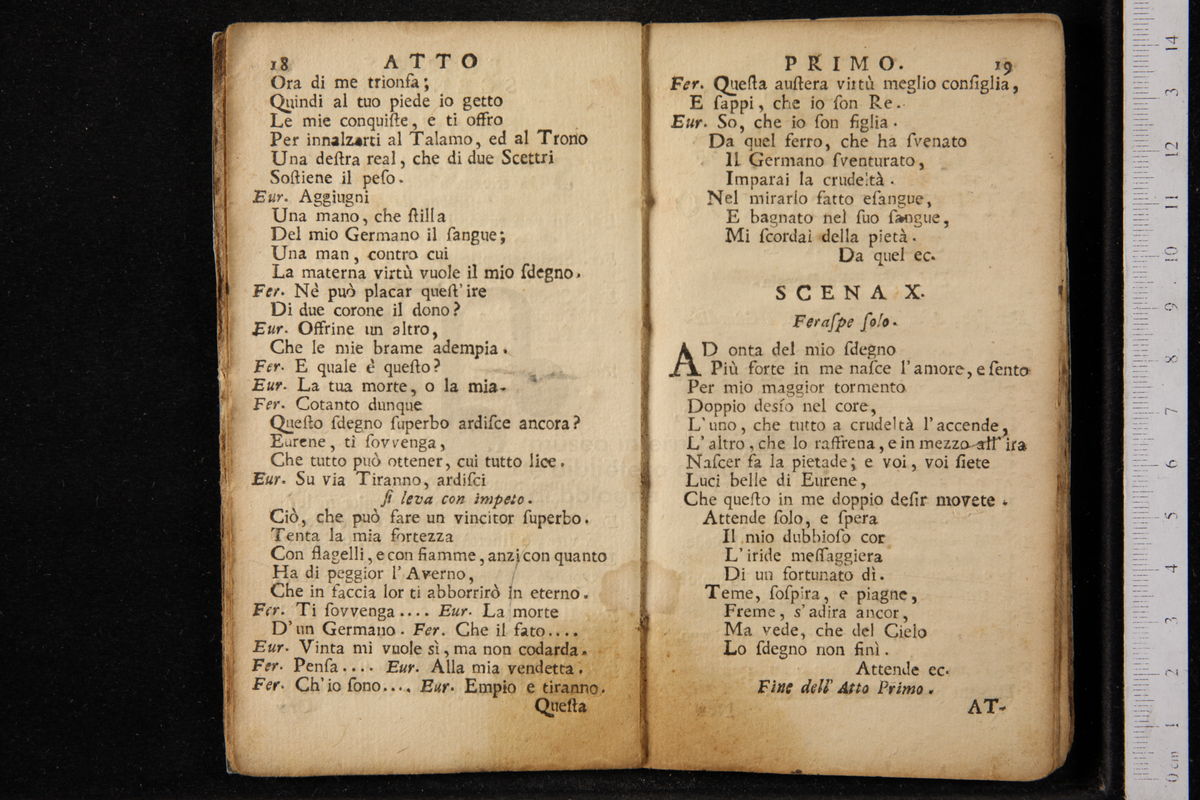 18 ATTO
Ora di me trionfa;
Quindi al tuo piede io getto
Le mie conquiſte, e ti offro
Per innalzarti al Talamo, ed al Trono
Una deſtra real, che di due Scettri
Soſtiene il peſo.
Eur. Aggiugni
Una mano, che ſtilla
Del mio Germano il ſangue;
Una man, contro cui
La materna virtù vuole il mio ſdegno.
Fer. Nè può placar queſt'ire
Di due corone il dono?
Eur. Offrine un altro,
Che le mie brame adempia.
Fer. E quale è queſto?
Eur. La tua morte, o la mia.
Fer. Cotanto dunque
Queſto ſdegno ſuperbo ardiſce ancora?
Eurene, ti ſovvenga,
Che tutto può ottener, cui tutto lice.
Eur. Su via Tiranno, ardiſci
ſi leva con impeto.
Ciò, che può fare un vincitor ſuperbo.
Tenta la mia fortezza
Con flagelli, e con fiamme, anzi con quanto
Ha di peggior l'Averno,
Che in faccia lor ti abborrirò in eterno.
Fer. Ti ſovvenga.... Eur. La morte
D'un Germano. Fer. Che il fato....
Eur. Vinta mi vuole sì, ma non codarda.
Fer. Penſa.... Eur. Alla mia vendetta.
Fer. Ch'io ſono.... Eur. Empio e tiranno.
Queſta
PRIMO. 19
Fer. Queſta auſtera virtù meglio conſiglia,
E ſappi, che io ſon Re.
Eur. So, che io ſon figlia.
Da quel ferro, che ha ſvenato
Il Germano ſventurato,
Imparai la crudeltà.
Nel mirarlo fatto eſangue,
E bagnato nel ſuo ſangue,
Mi ſcordai della pietà.
Da quel ec.
SCENA X.
Feraſpe ſolo.
AD onta del mio ſdegno
Più forte in me naſce l'amore, e ſento
Per mio maggior tormento
Doppio desío nel core,
L'uno, che tutto a crudeltà l'accende,
L'altro, che lo raffrena, e in mezzo all'ira
Naſcer fa la pietade; e voi, voi ſiete
Luci belle di Eurene,
Che queſto in me doppio deſir movete.
Attende ſolo, e ſpera
Il mio dubbioſo cor
L'iride meſſaggiera
Di un fortunato dì.
Teme, ſoſpira, e piagne,
Freme, s'adira ancor,
Ma vede, che del Cielo
Lo ſdegno non finì.
Attende ec.
Fine dell'Atto Primo.
AT-
0 cm 1 2 3 4 5 6 7 8 9 10 11 12 3 14